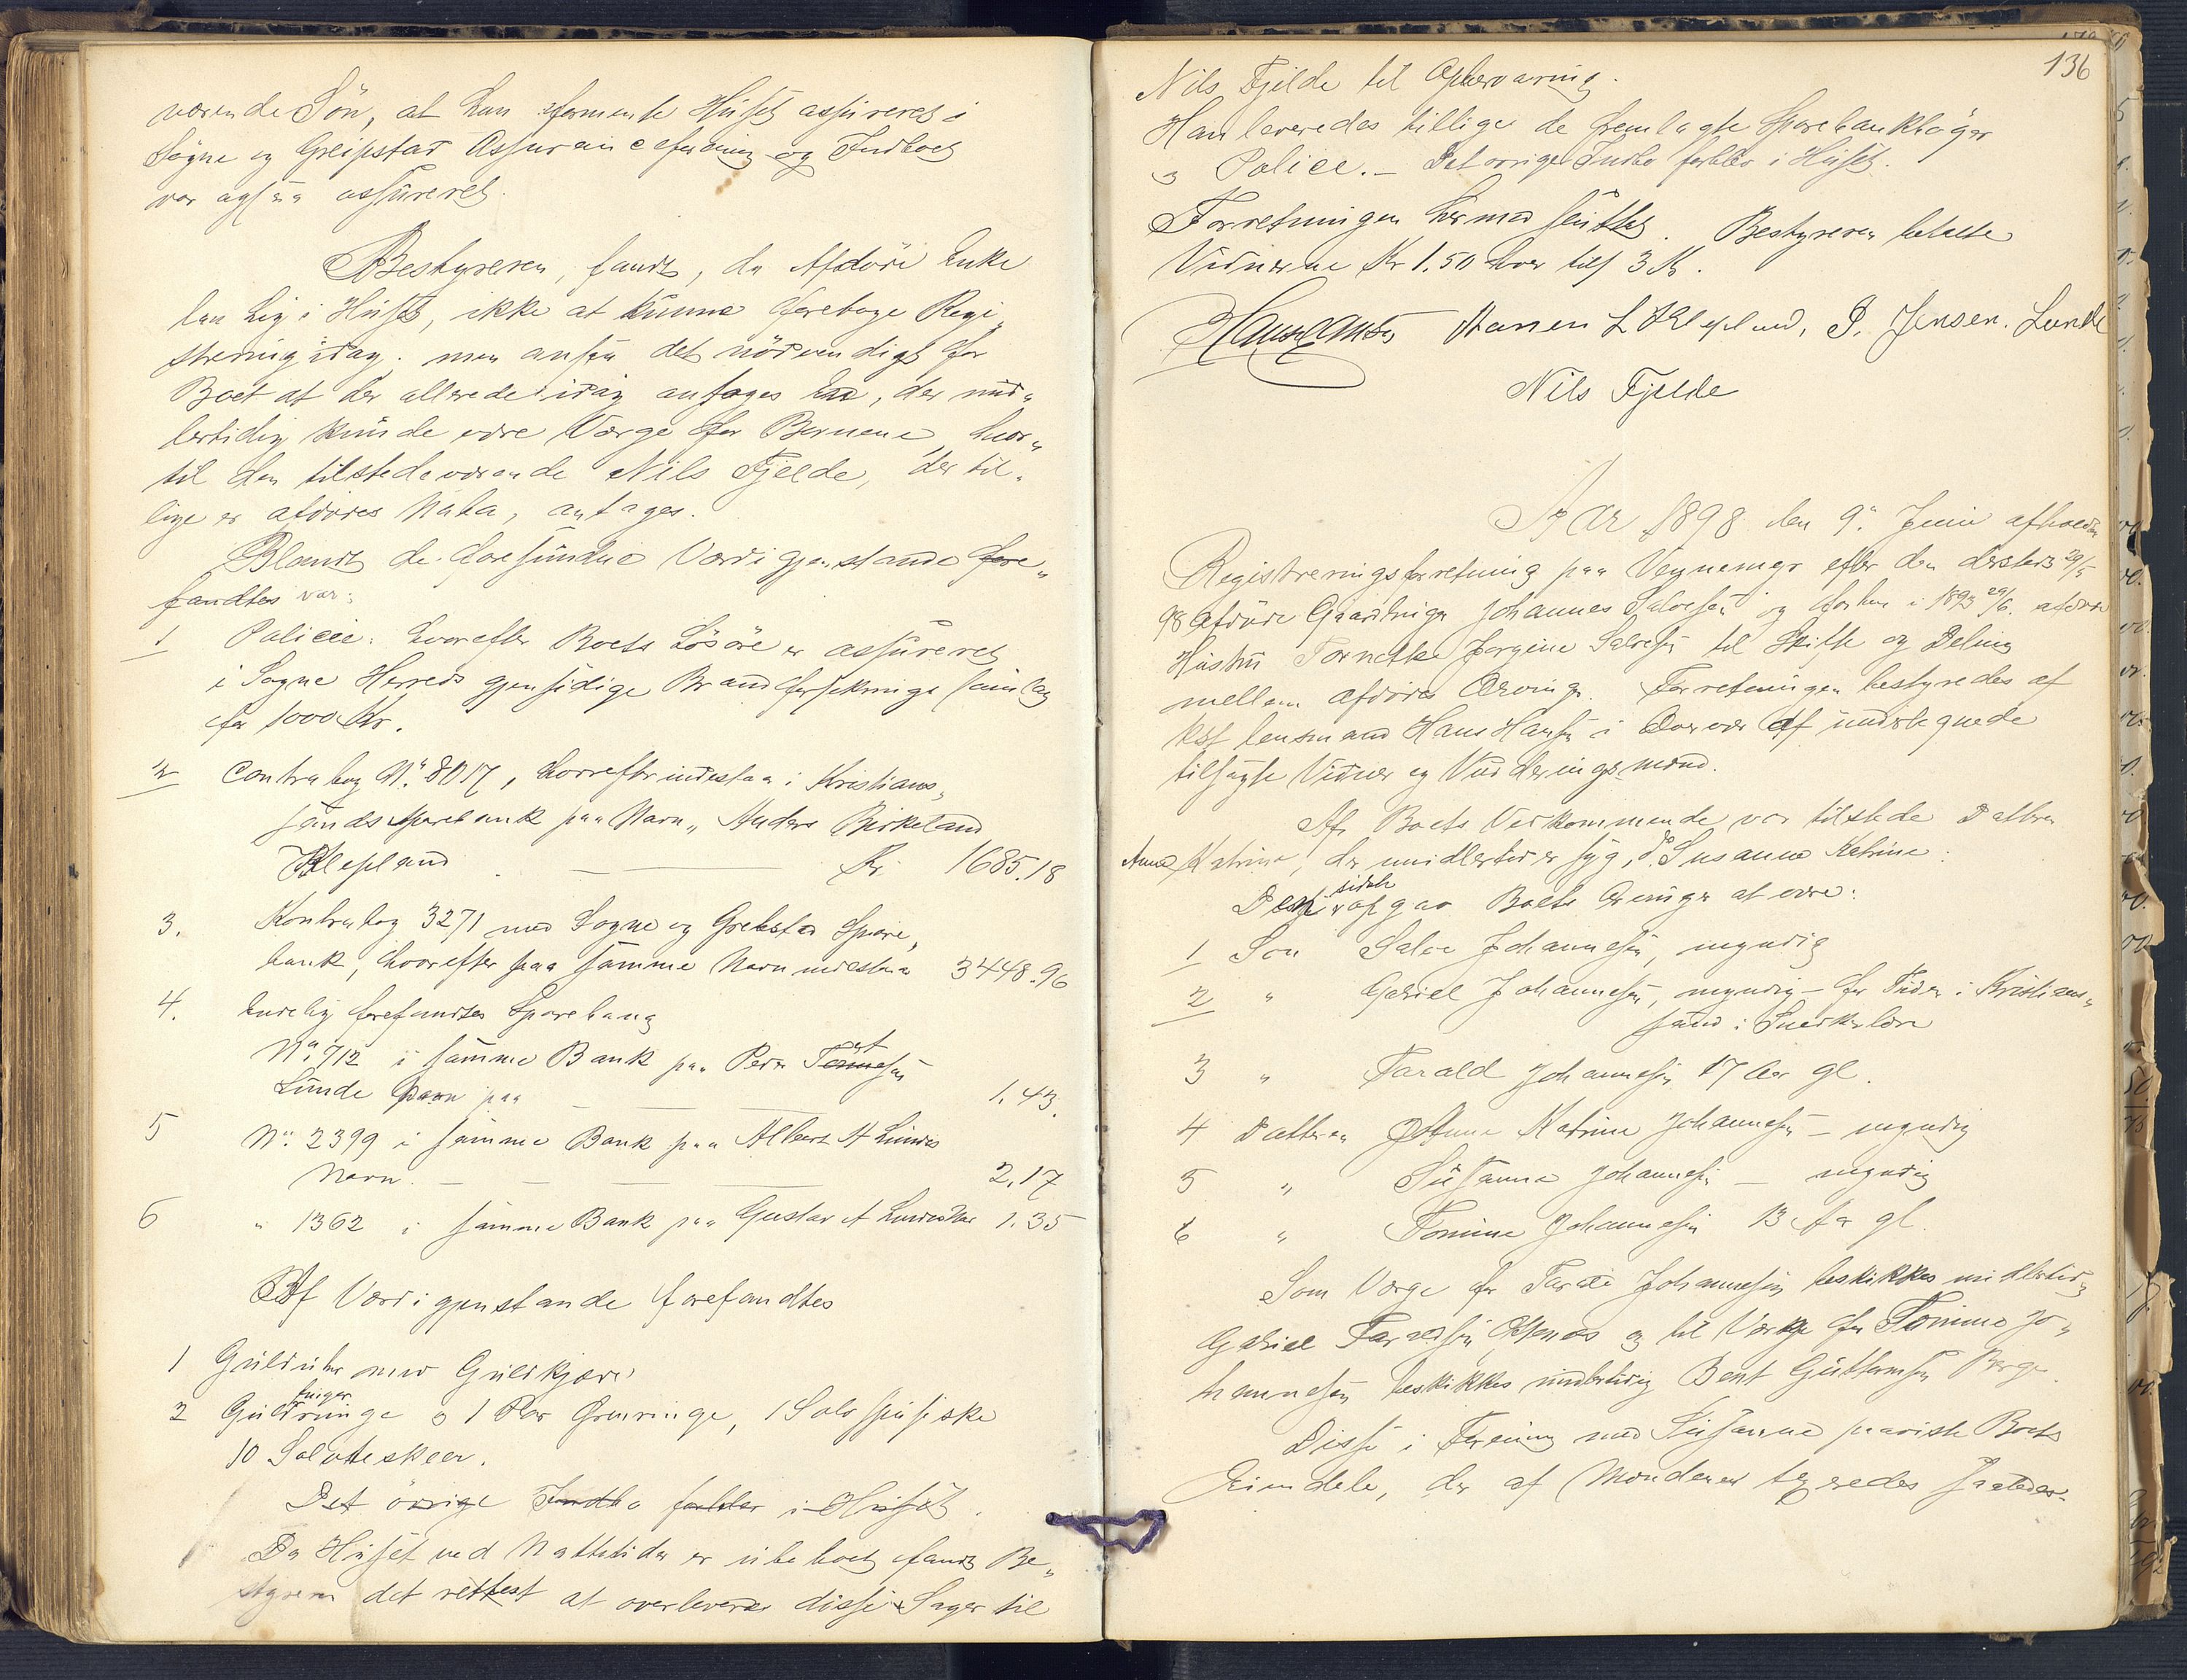 værende Søn, at han formente Huset assureret i
Søgne og Greipstad Assuranceforening og Indboet
var ogsaa assureret.
Bestyreren, fandt, da Afdøde Enke
laa Lig i Huset, ikke at kunne foretage Regi„
strering idag. men ansaa det nødvendigt for
Boet at der allerede idag antages En, der mid„
lertidig kunde være Værge for Børnene, hvor„
til den tilstedeværende Nils Fjelde, der til„
lige er afdødes Nabo, antages.
Blandt de forefundne Værdigjenstande fore„
fandtes var:
1 Police: hvorefter Boets Løsøre er assureret
i Søgne Herreds gjensidige Brandforsikrings samlag
for 1000 Kr.
2 Contrabog No. 8017, hvorefter indestaa i Kristians„
sands Sparebank paa Navn „ Anders Birkeland
Klepland Kr. 1685.18
3. Kontrabog 3271 med Sogne og Grebstad Spare„
bank, hvorefter paa samme Navn indestaa 3448.96
4. Endelig forefandtes Sparebog
No. 712 i samme Bank paa Peder
Lunde Navn paa 1.43.
5 No. 2399 i samme Bank paa Albert A Lundes
Navn. 2.17
6 „ 1362 i samme Bank paa Gustav A Lundes Nav 1.35
Af Værdigjenstande forefandtes
1 Guldube med Guldkjæde
2 Guldringe og 1 Par Ørenringe, 1 Sølv spiseske
10 Sølvtheskeer.
Det øvrige Indbo forblev i Huset.
Da Huset ved Nattetider er ubeboet fandt Be„
styreren det rettest at overlevere disse Sager til
136
Nils Fjelde til Opbevaring.
Han leveredes tillige de fremlagte Sparebankbøger
og Police. – Det øvrige Indbo forblev i Huset.
Forretningen hermed sluttet. Bestyreren betalte
Vidnerne Kr 1.50 hver tils 3 Kr.
Hans Hansen L Klepland, P. Jensen. Lunde
Nils Fjelde
Aar 1898 den 9. Juni afholdtes
Registreringsforretning paa efter den dersteds 29/5
98 afdøde Gaardbruger Johannes Salvesen og forhen i 1893 29/6. afdøde
Hustru Jørgine Salvesen til Skifte og Deling
mellem afdødes Arvinger. Forretningen bestyredes af
kst lensmand Hans Hansen i Overvær af undertegnede
tilsagte Vidner og Vurderingsmænd.
Af Boets Vedkommende var tilstede Datteren
Anna Katrine, der imidlertid er syg, do. Susanne Katrine.
sidste opgav Boets Arvinger at være:
1 Søn Salve Johannesen, myndig
2 „ Gabriel Johannesen, myndig – for Tiden i Kristians„
sand i Snedkerlære
3 „ Tarald Johannesen 17 Aar gl.
4 Datteren Anna Katrine Johannesen – myndig
5 „ Susanne Johannesen – myndig
6 „ Tomine Johannesen 13 Aar gl.
Som Værge for Tarald Johannesen beskikkes midlertidig
Gabriel Taraldsen og til Værge for Tomine Jo„
hannesen beskikkes midlertidig Bent Guttormsen Berge.
Disse i Forening med Susanne paaviste Boets
Eiendele, der af Mændene saaledes: